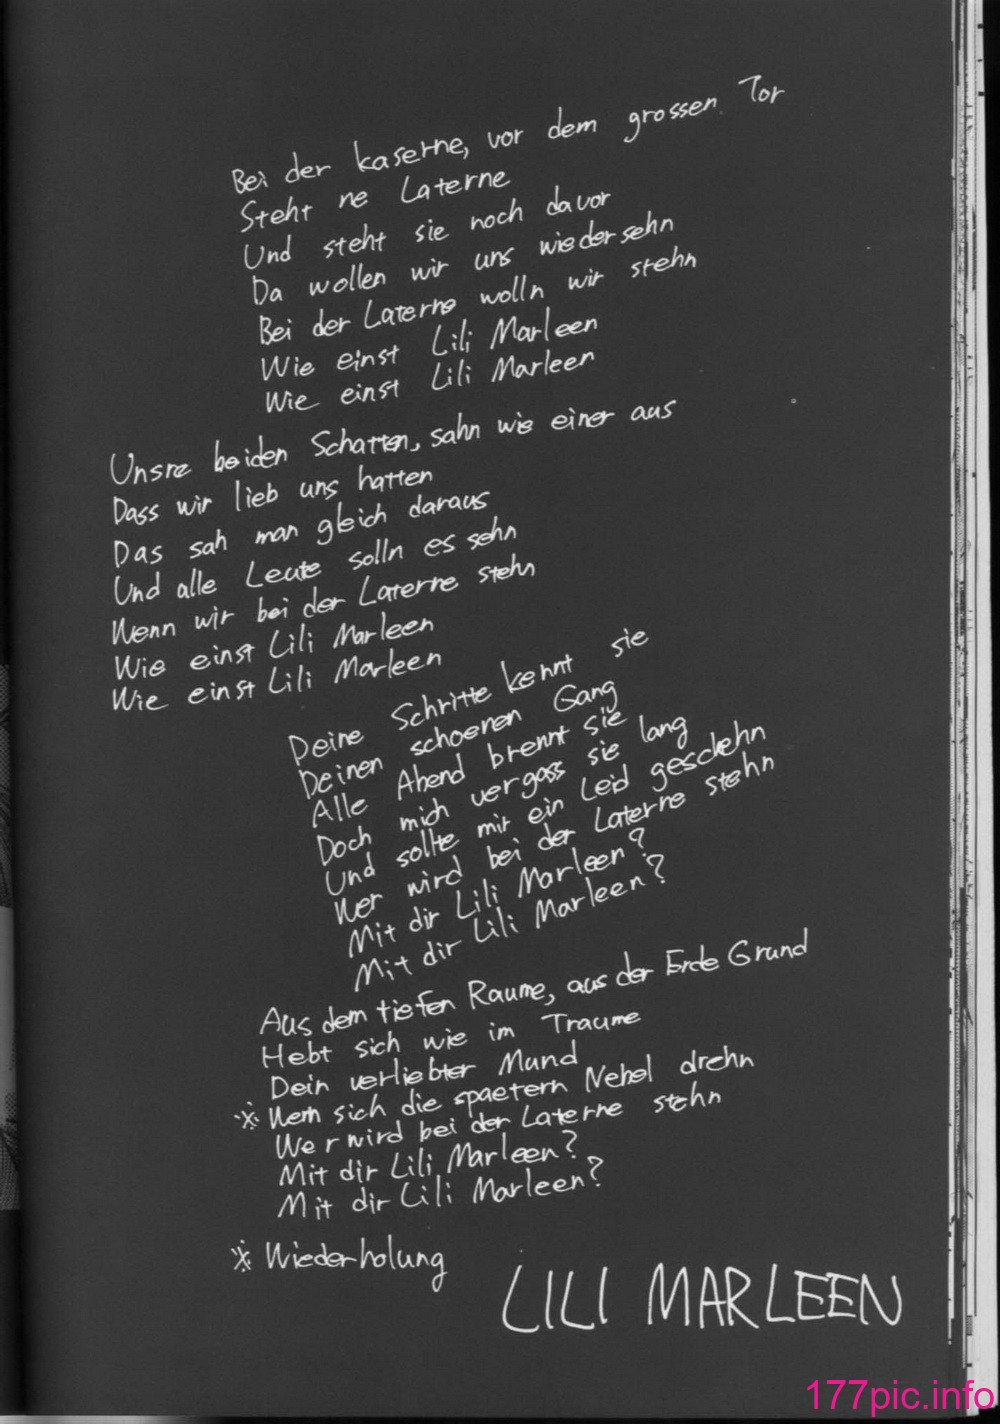 Bei der kaserne, vor dem grossen Tor
Steht ne Laterne
Und steht sie noch davor
Da wollen wir uns wiedersehn
Bei der Laterne wolln wir stehn
Wie einst Lili Marleen
Wie einst Lili Marleen
Unsre beiden Schatten, sahn wie einer aus
Dass wir lieb uns hatten
Das sah man gleich daraus
Und alle Leute solln es sehn
Wenn wir bei der Laterne stehn
Wie einst Lili Marleen
Wie einst Lili Marleen
Deine Schritte kennt sie
Deinen schoenen Gang
Alle Abend brennt sie
Doch mich vergass sie lang
Und sollte mir ein Leid geschehn
Wer wird bei der Laterne stehn
Mit dir Lili Marleen?
Mit dir Lili Marleen?
Aus dem tiefen Raume, aus der Erde Grund
Hebt sich wie im Traume
Dein verliebter Mund
※ Wenn sich die spaetern Nebel drehn
Wer wird bei der Laterne stehn
Mit dir Lili Marleen?
Mit dir Lili Marleen?
※ Wiederholung
LILI MARLEEN
177pic.info